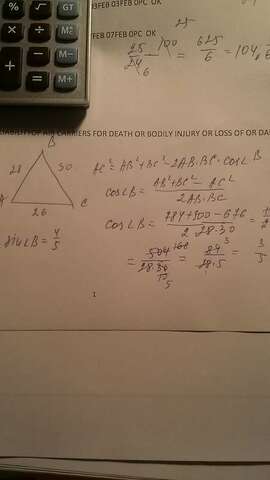 03FEB 03FEB 0PC OK
25
07FEB 07FEB 0PC OK
25/24 · 100/6 = 625/6 = 104,
LIABILITY OF AIR CARRIERS FOR DEATH OR BODILY INJURY OR LOSS OF OR DA
B
28 30
A 26 C
AC² = AB² + BC² - 2AB·BC·cos∠B
cos∠B = (AB² + BC² - AC²)/(2AB·BC)
cos∠B = (784 + 900 - 676)/(2·28·30) =
sin∠B = 4/5
= 504/(28·30) = 84/(28·5) = 3/5
% MU
× ÷
M- M+
+ =